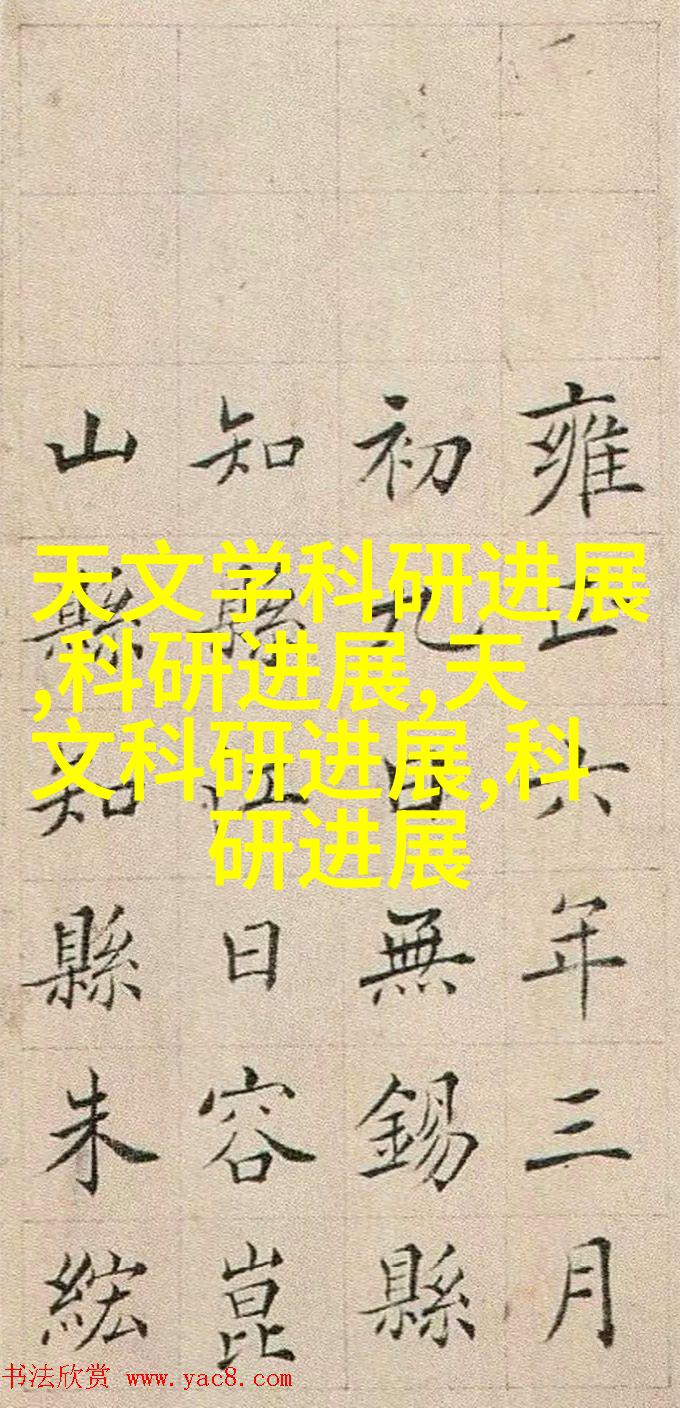 天文学科研进展
,科研进展,天
文科研进展,科
研进展
雍正六年三月
初九日無錫縣
知縣江日容崑
山縣知縣朱紘
书法欣赏 www.yac8.com